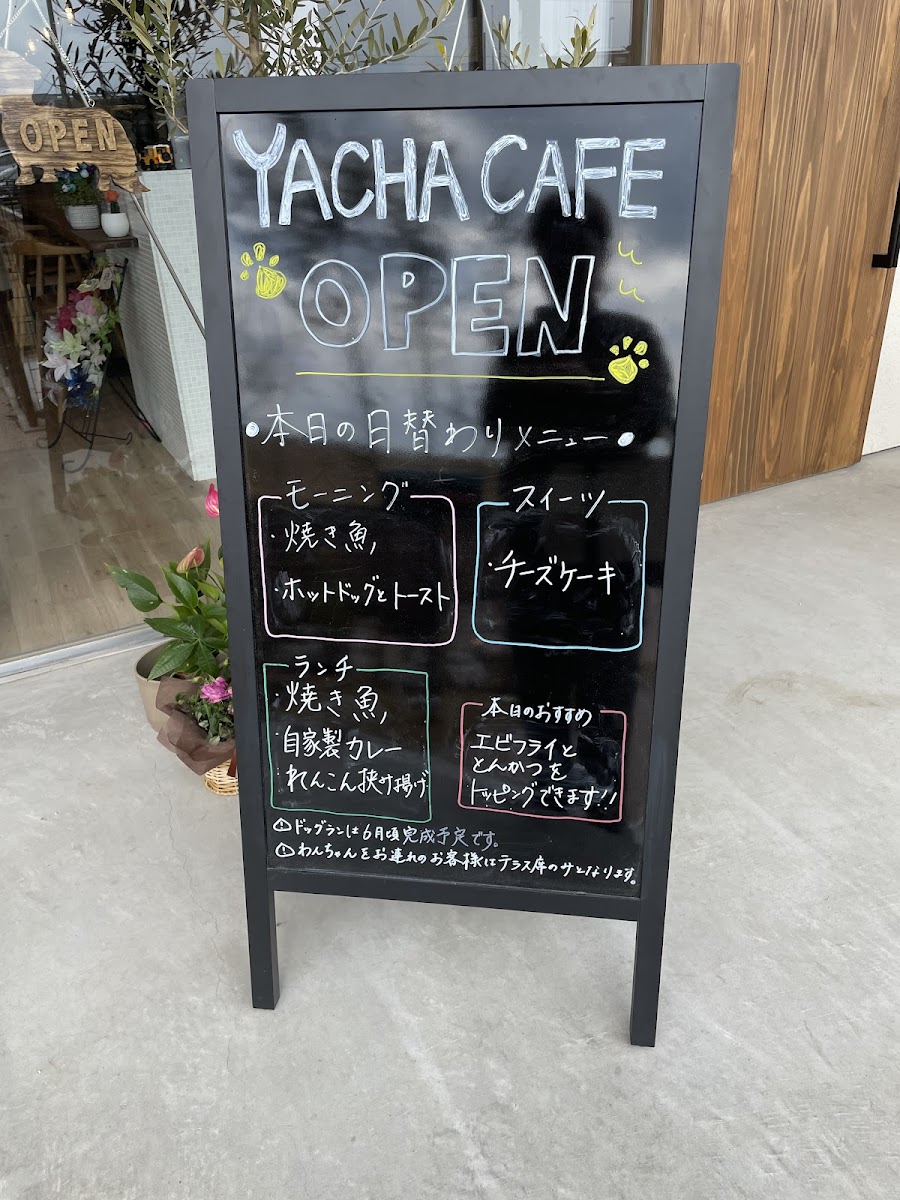 OPEN
YACHA CAFE
OPEN
・本日の日替わりメニュー・
モーニング
・焼き魚
・ホットドッグとトースト
スイーツ
・チーズケーキ
ランチ
・焼き魚
・自家製カレー
れんこん挟み揚げ
本日のおすすめ
エビフライと
とんかつを
トッピングできます!!
ドッグランは6月頃完成予定です。
わんちゃんをお連れのお客様はテラス席のみとなります。